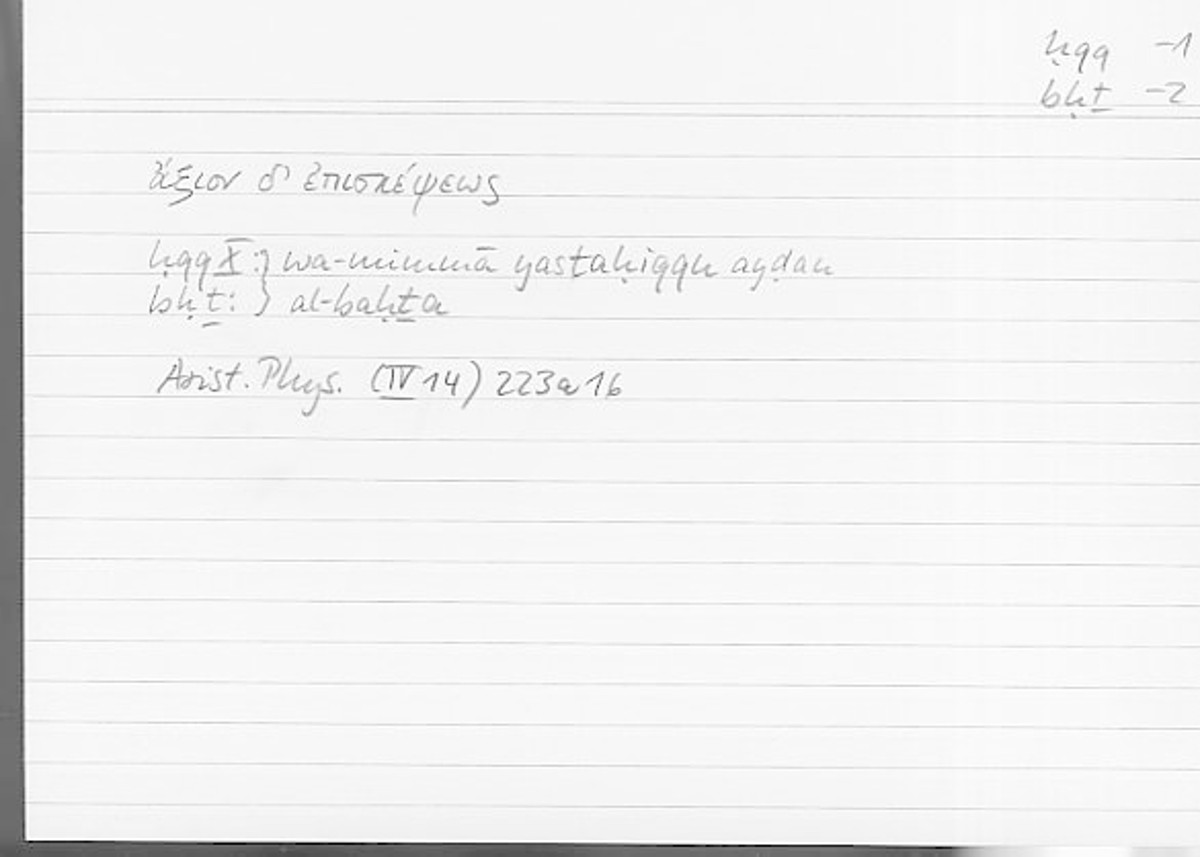 ḥqq -1
bḥṯ -2
ἄξιον δ' ἐπισκέψεως
ḥqq X: } wa-mimmā yastaḥiqqu ayḍan
bḥṯ: } al-baḥṯa
Arist. Phys. (IV 14) 223a16